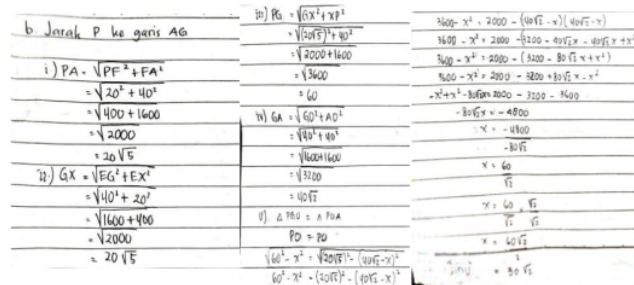 b. Jarak P ke garis AG
i) PA = √PF² + FA²
= √20² + 40²
= √400 + 1600
= √2000
= 20√5
ii.) GX = √EG² + EX²
= √40² + 20²
= √1600 + 400
= √2000
= 20√5
iii) PG = √GX² + XP²
= √(20√5)² + 40²
= √2000 + 1600
= √3600
= 60
iv) GA = √GD² + AD²
= √40² + 40²
= √1600 + 1600
= √3200
= 40√2
v). △ PGO = △ POA
PO = PO
√60² - x² = √(20√5)² - (40√2-x)²
60² - x² = (20√5)² - (40√2-x)²
3600 - x² = 2000 - (40√2 - x)(40√2-x)
3600 - x² = 2000 - (3200 - 40√2x - 40√2x + x²
3600 - x² = 2000 - (3200 - 80√2x + x²)
3600 - x² = 2000 - 3200 + 80√2x - x²
-x² + x² - 80√2x = 2000 - 3200 - 3600
-80√2x = -4800
x = -4800
-80√2
x = 60
√2
x = 60 . √2
√2 √2
x = 60√2
2
= 30√2